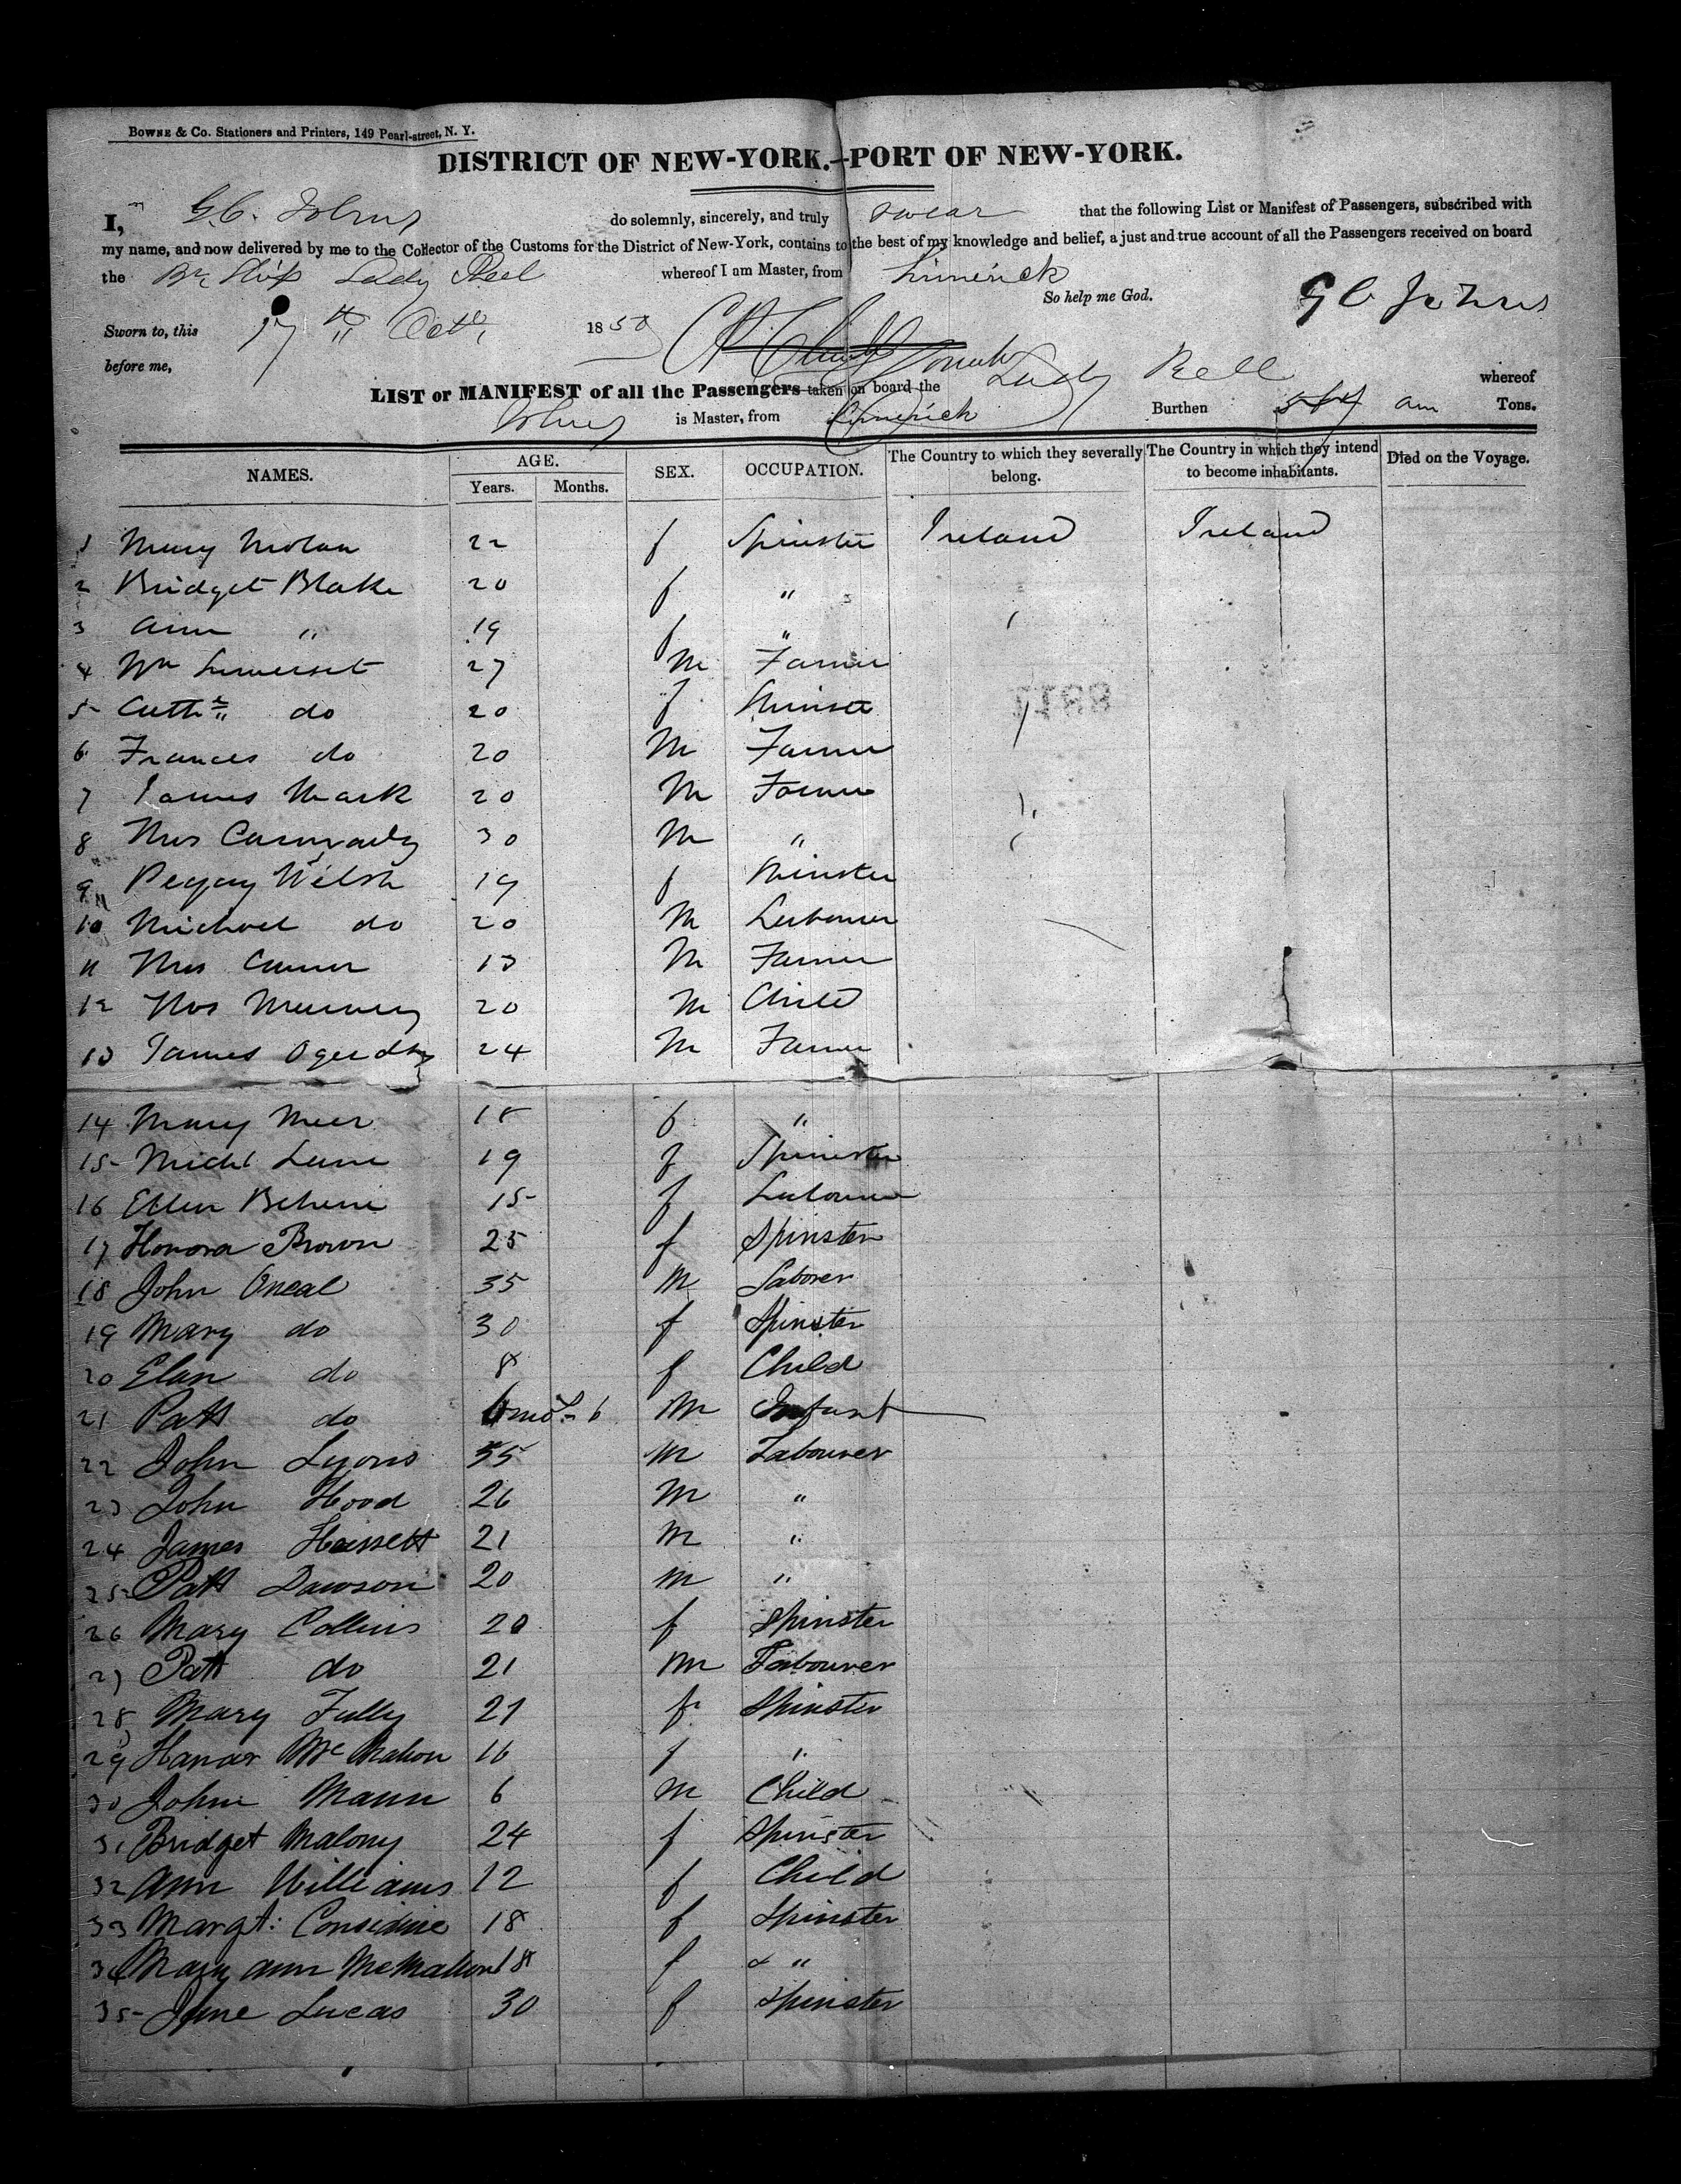 BOWNE & Co. Stationers and Printers, 149 Pearl-street, N. Y.
DISTRICT OF NEW-YORK.—PORT OF NEW-YORK.
I, G. C. Johns do solemnly, sincerely, and truly swear that the following List or Manifest of Passengers, subscribed with
my name, and now delivered by me to the Collector of the Customs for the District of New-York, contains to the best of my knowledge and belief, a just and true account of all the Passengers received on board
the Br Ship Lady Peel whereof I am Master, from Limerick
So help me God. G C Johns
Sworn to, this 17 th Oct 1850
before me,
LIST or MANIFEST of all the Passengers taken on board the Lady Peel whereof
Johns is Master, from Limerick Burthen Tons.
NAMES. AGE. Years. Months. SEX. OCCUPATION. The Country to which they severally belong. The Country in which they intend to become inhabitants. Died on the Voyage.
1 Mary Nolan 22 f Spinster Ireland Ireland
2 Bridget Blake 20 f "
3 Ann " 19 f "
4 Wm 27 M Farmer
5 Cath do 20 f
6 Frances do 20 M Farmer
7 James Mark 20 M Farmer
8 30 M "
9 Peggy Welsh 19 f Spinster
10 Michael do 20 M Labourer
11 13 M Farmer
12 20 M Child
13 James 24 M Farmer
14 Mary Meer 18 f "
15 Michl 19 f Spinster
16 Ellen 15 f Labourer
17 Honora Brown 25 f Spinster
18 John Oneal 35 M Laborer
19 Mary do 30 f Spinster
20 Elan do 8 f Child
21 Patt do 6 mos 6 M Infant
22 John Lyons 35 M Labourer
23 John Hood 26 M "
24 James Hassett 21 M "
25 Patt Dawson 20 M "
26 Mary Collins 20 f Spinster
27 Patt do 21 M Labourer
28 Mary Fully 21 f Spinster
29 Hanar McMahon 16 f "
30 John Mann 6 M Child
31 Bridget Malony 24 f Spinster
32 Ann Williams 12 f Child
33 Margt: Considine 18 f Spinster
34 Mary ann McMahon 18 f "
35 Jane Lucas 30 f Spinster